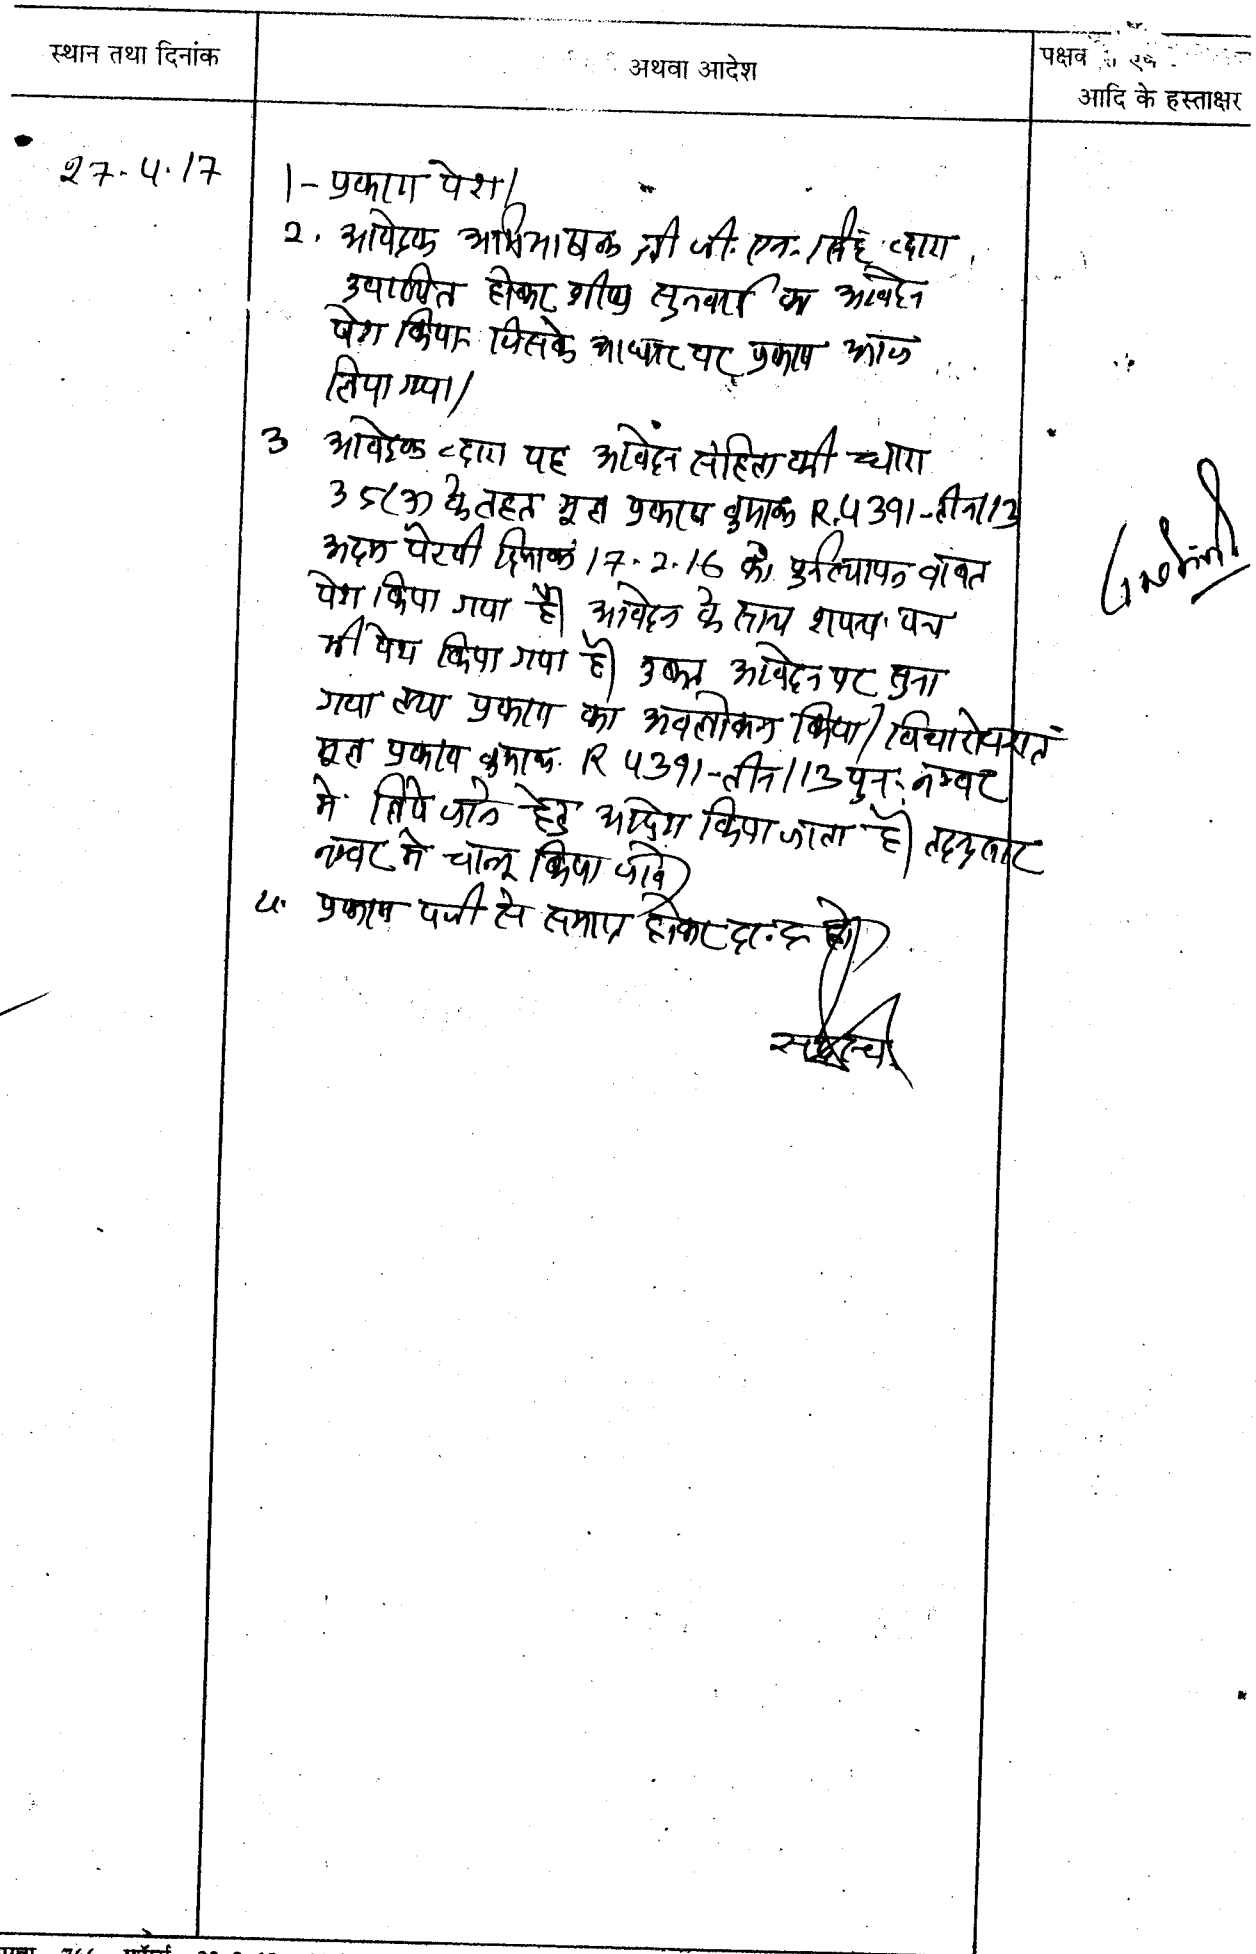 स्थान तथा दिनांक
अथवा आदेश
पक्षव
आदि के हस्ताक्षर
27.4.17
1- प्रकरण पेश।
2. आवेदक अभिभाषक श्री जी. एन. सिंह द्वारा
उपस्थित होकर शीघ्र सुनवाई का आवेदन
पेश किया जिसके आधार पर प्रकरण आज
लिया गया।
3 आवेदक द्वारा यह आवेदन संहिता की धारा
35(3) के तहत मूल प्रकरण क्रमांक R.4391-तीन/13
अदम पैरवी दिनांक 17.2.16 को पुर्नस्थापन बावत
पेश किया गया है। आवेदन के साथ शपथ पत्र
भी पेश किया गया है। उक्त आवेदन पर सुना
गया तथा प्रकरण का अवलोकन किया। विचारोपरांत
मूल प्रकरण क्रमांक R 4391-तीन/13 पुनः नम्बर
मे लिये जाने हेतु आदेश किया जाता है। तदनुसार
नम्बर मे चालू किया जावे।
4. प्रकरण पंजी से समाप्त होकर दा.द. हो।